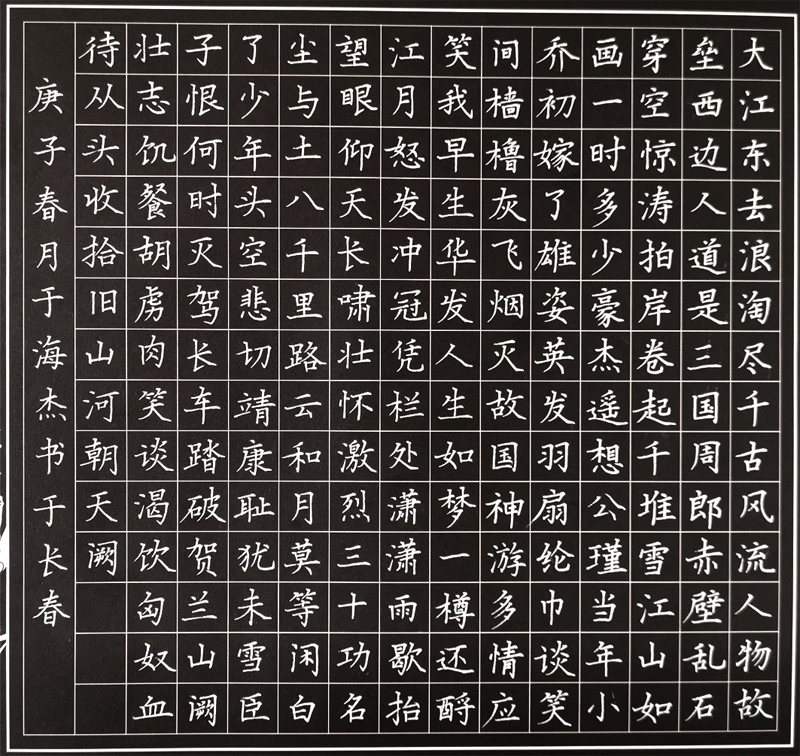 大江东去浪淘尽千古风流人物故
垒西边人道是三国周郎赤壁乱石
穿空惊涛拍岸卷起千堆雪江山如
画一时多少豪杰遥想公瑾当年小
乔初嫁了雄姿英发羽扇纶巾谈笑
间樯橹灰飞烟灭故国神游多情应
笑我早生华发人生如梦一樽还酹
江月怒发冲冠凭栏处潇潇雨歇抬
望眼仰天长啸壮怀激烈三十功名
尘与土八千里路云和月莫等闲白
了少年头空悲切靖康耻犹未雪臣
子恨何时灭驾长车踏破贺兰山阙
壮志饥餐胡虏肉笑谈渴饮匈奴血
待从头收拾旧山河朝天阙
庚子春月于海杰书于长春